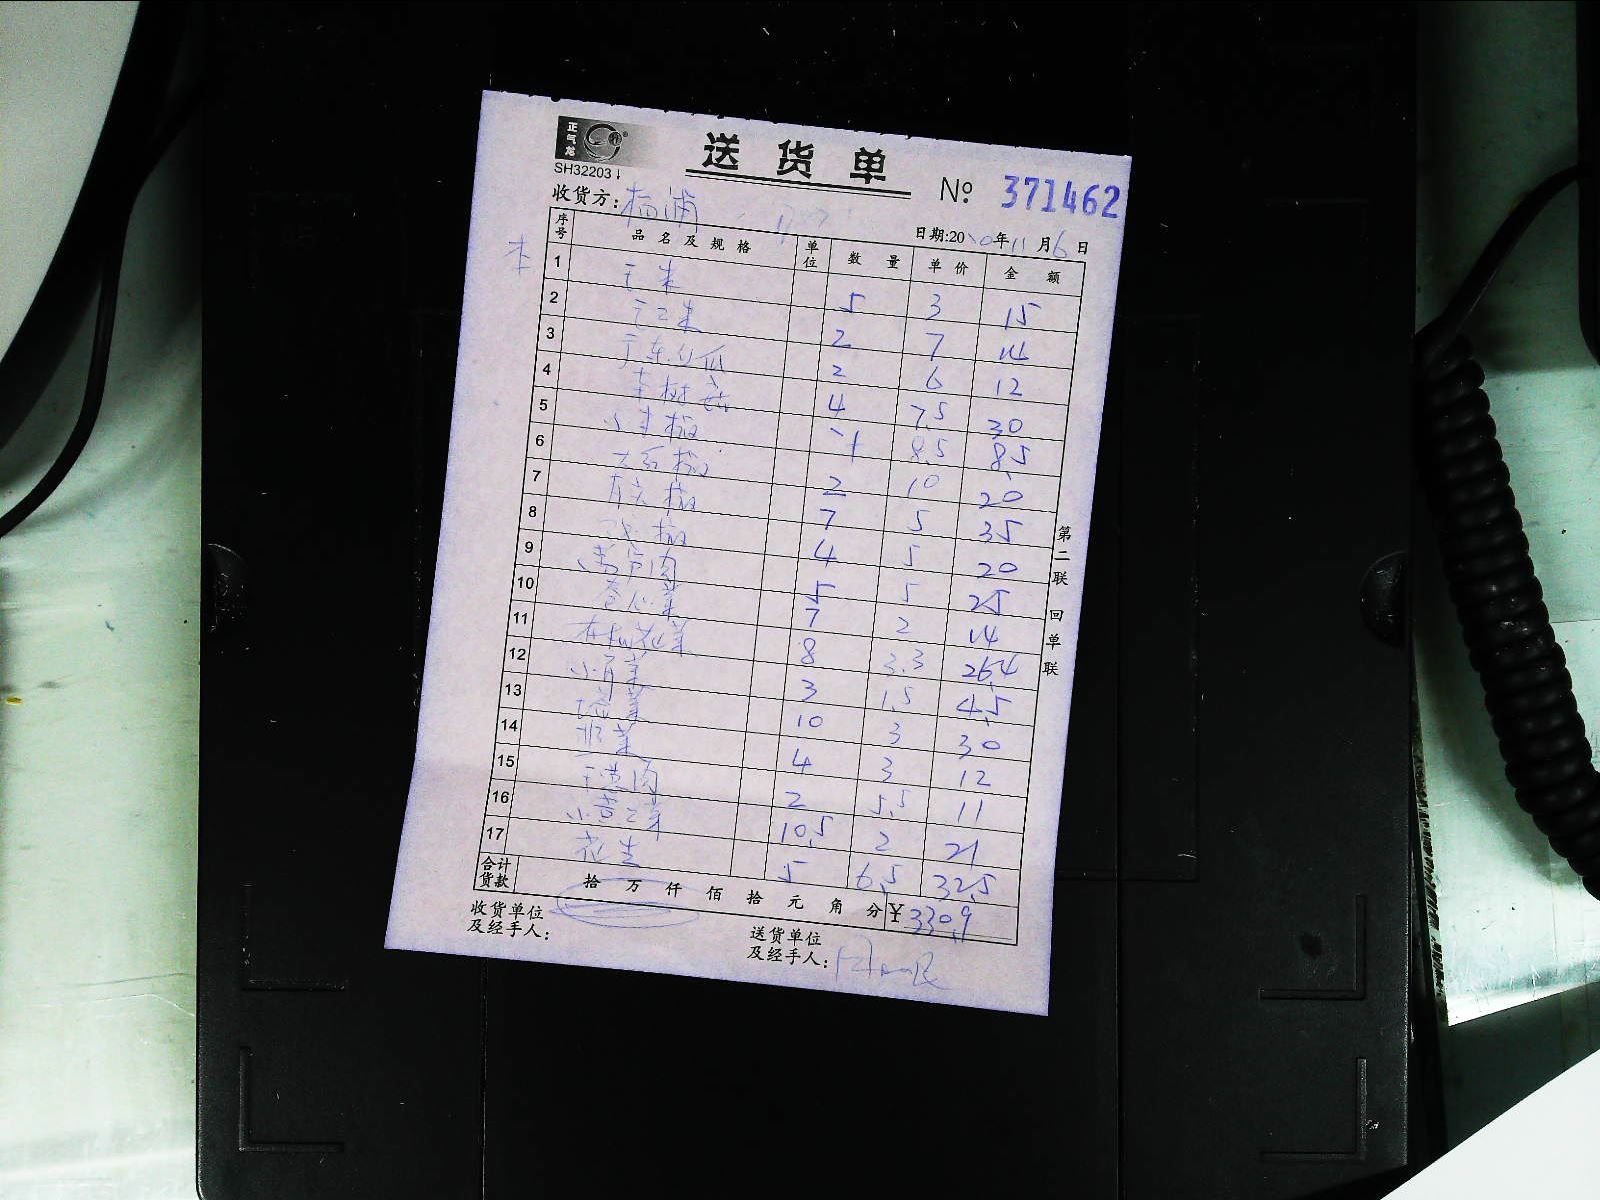 正气龙
送货单
SH32203
No. 371462
收货方: 杨浦
日期:2020年11月6日
序号 品名及规格 单位 数量 单价 金额
1 玉米 5 3 15
2 2 7 14
3 2 6 12
4 茶树菇 4 7.5 30
5 小米椒 1 8.5 8.5
6 大红椒 2 10 20
7 椒 7 5 35
8 椒 4 5 20
9 5 5 25
10 卷心菜 7 2 14
11 有机花菜 8 3.3 26.4
12 小青菜 3 1.5 4.5
13 菠菜 10 3 30
14 菜 4 3 12
15 2 5.5 11
16 小 菜 10.5 2 21
17 花生 5 6.5 32.5
合计货款 拾 万 仟 佰 拾 元 角 分 ¥330.9
收货单位及经手人:
送货单位及经手人:
第二联 回单联